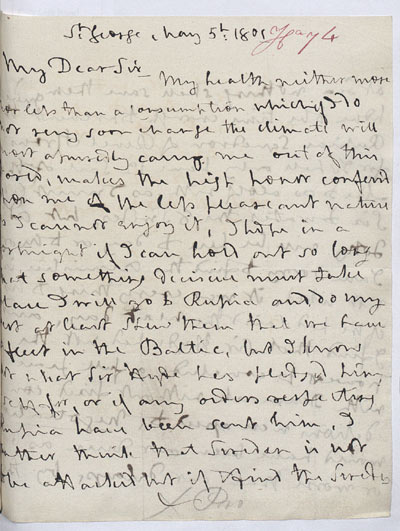 St George, May 5th: 1801
My Dear Sir
My health neither more
or less than a consumption which if I do
not very soon change the climate will
most assuredly carry me out of this
World, makes the high honor conferd
upon me of the less pleasant nature
as I cannot enjoy it, I hope in a
fortnight if I can hold out so long
that something decisive must take
place I will go to Russia and do my
at least shew them that we have
a fleet in the Baltic, but I know
not what Sir Hyde has pledged him
self for, or if any orders respecting
Russia have been sent him, I
rather think that Sweden is not
to be attacked but if I find the Swedes